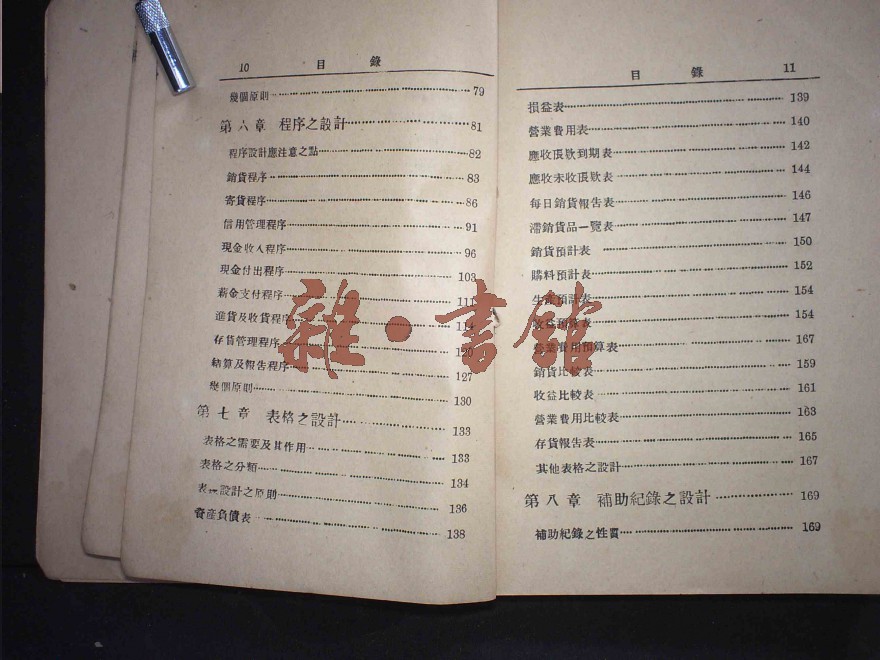 10 目錄
幾個原則 79
第六章 程序之設計 81
程序設計應注意之點 82
銷貨程序 83
寄貨程序 86
信用管理程序 91
現金收入程序 96
現金付出程序 103
薪金支付程序 111
進貨及收貨程序 114
存貨管理程序 120
結算及報告程序 127
幾個原則 130
第七章 表格之設計 133
表格之需要及其作用 133
表格之分類 134
表 設計之原則 136
資產負債表 138
目錄 11
損益表 139
營業費用表 140
應收賬欵到期表 142
應收未收賬欵表 144
每日銷貨報告表 146
滯銷貨品一覽表 147
銷貨預計表 150
購料預計表 152
生產預計表 154
收益預算表 154
營業費用預算表 167
銷貨比較表 159
收益比較表 161
營業費用比較表 163
存貨報告表 165
其他表格之設計 167
第八章 補助紀錄之設計 169
補助紀錄之性質 169
雜·書館